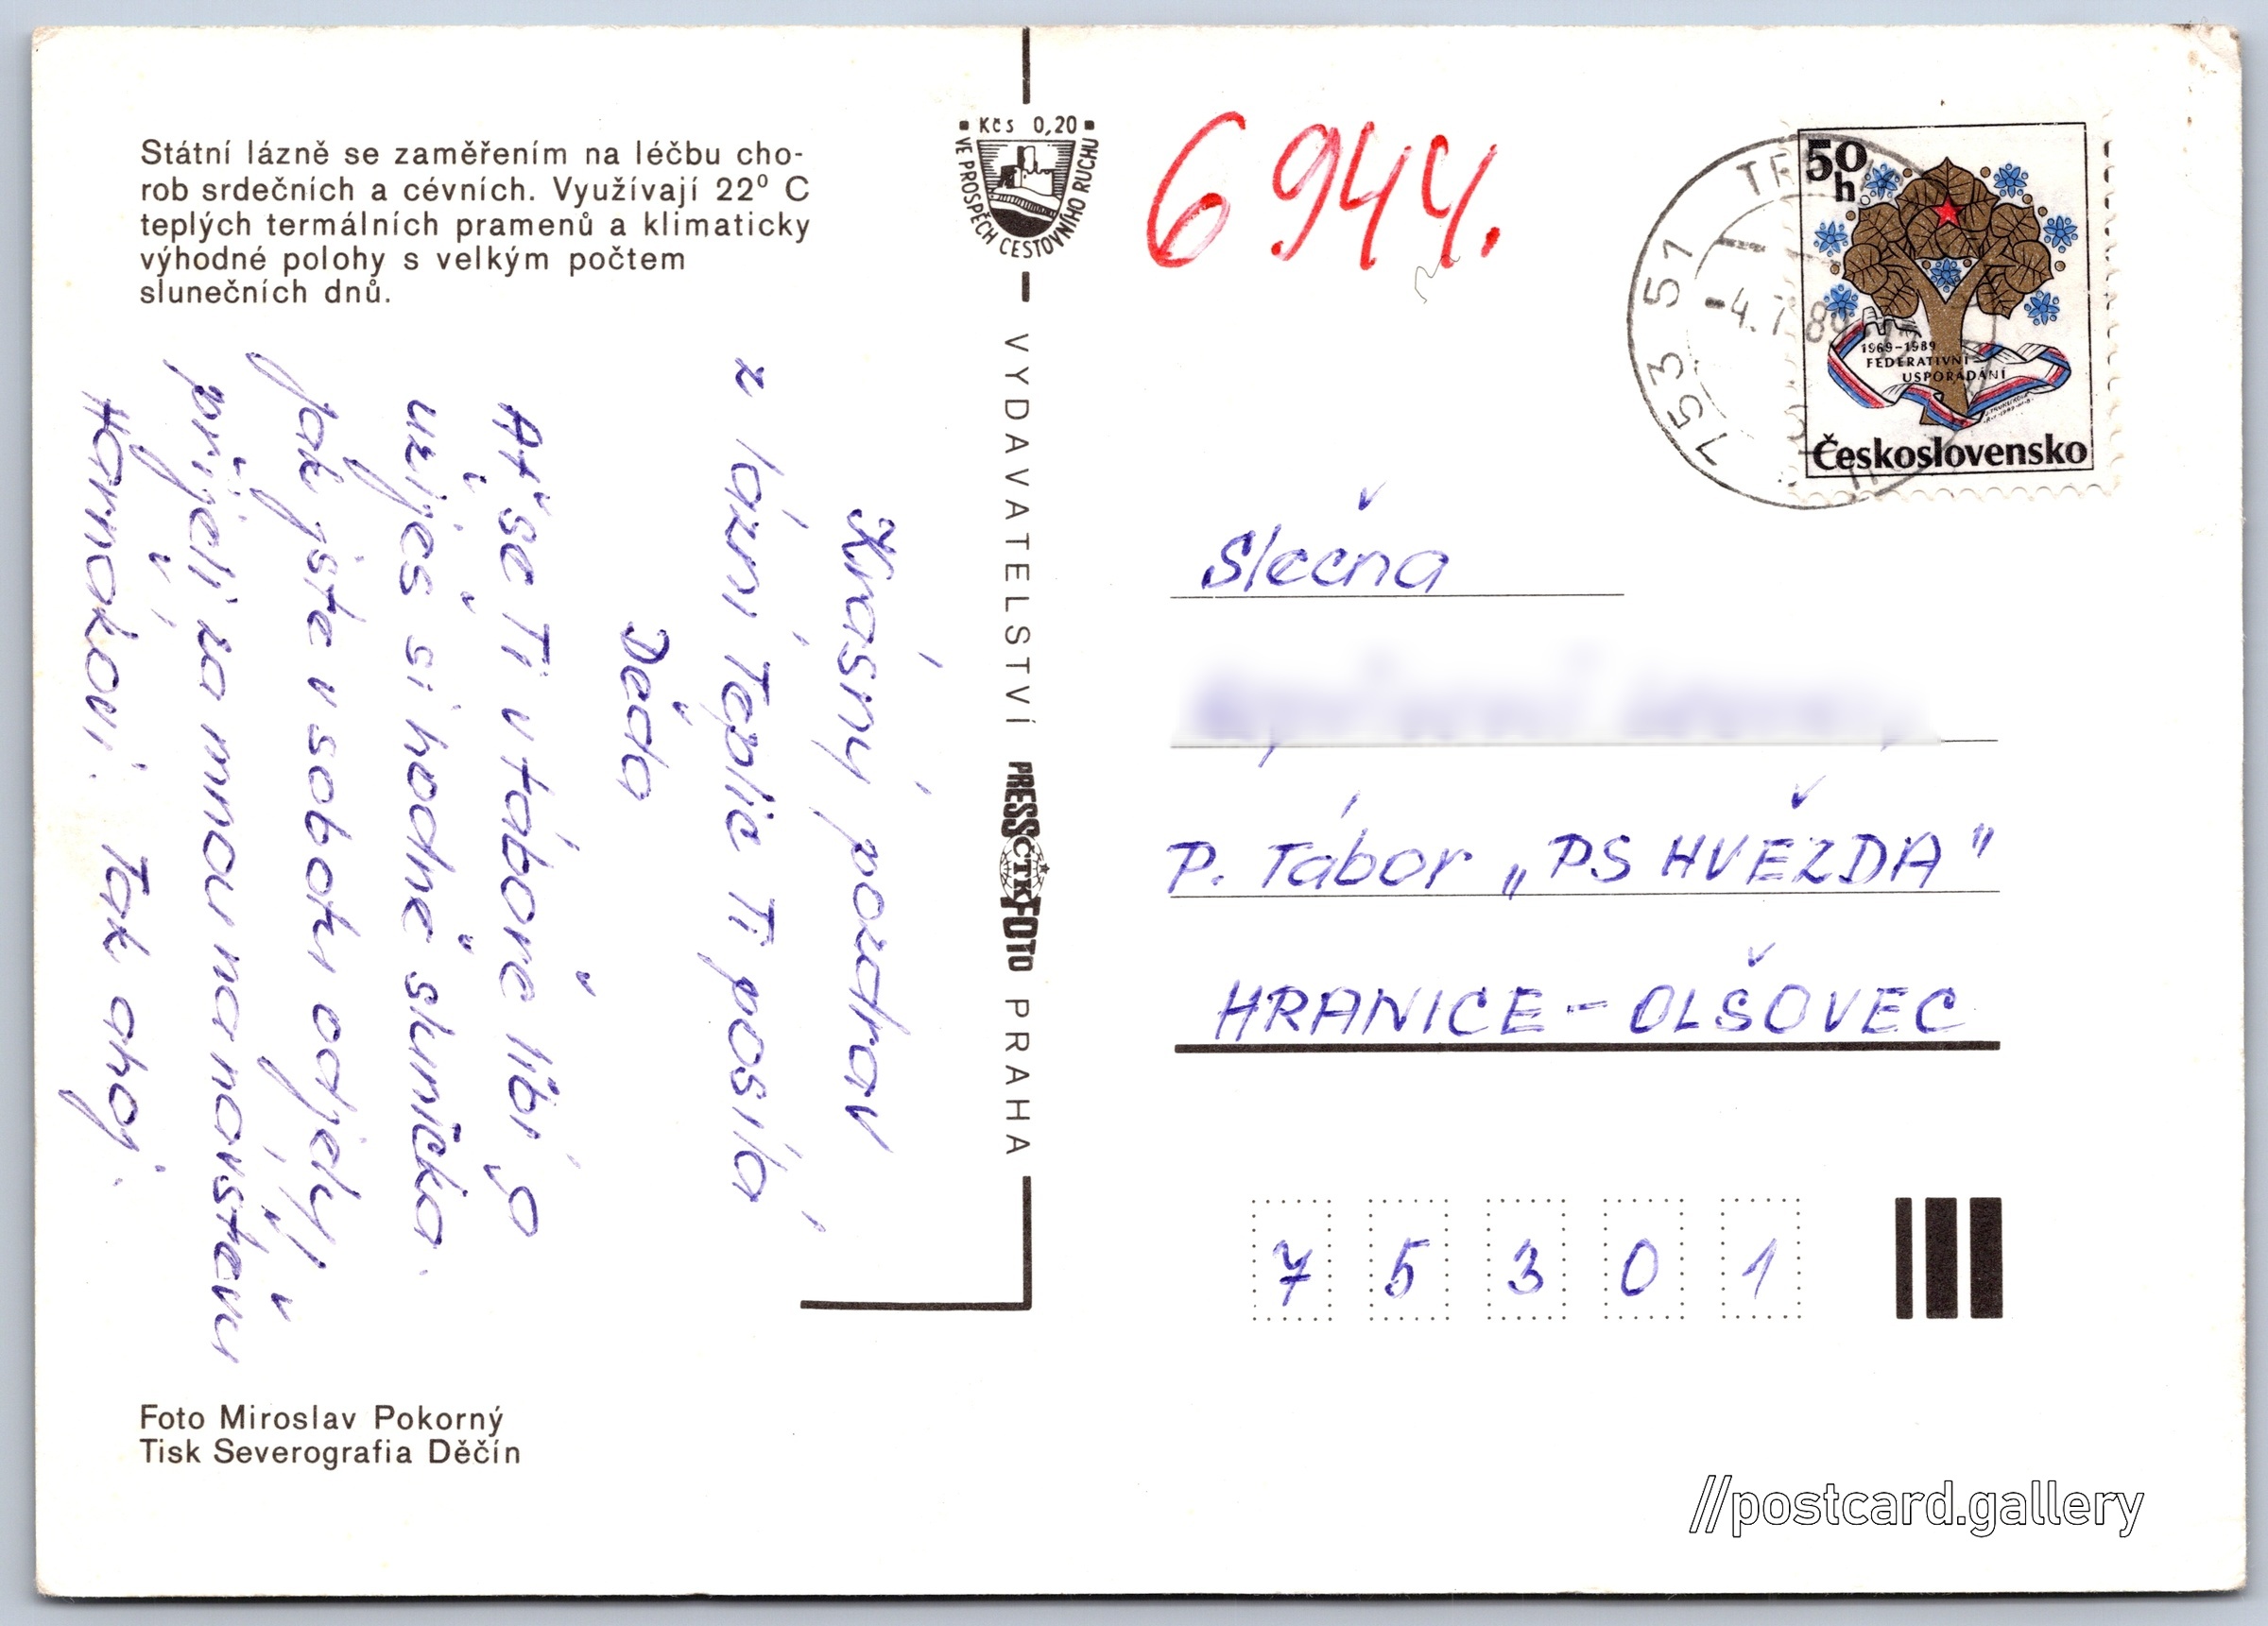 Státní lázně se zaměřením na léčbu cho-
rob srdečních a cévních. Využívají 22⁰ C
teplých termálních pramenů a klimaticky
výhodné polohy s velkým počtem
slunečních dnů.
Krásný pozdrav
z lázní Teplic Ti posílá
Děda
Ať se Ti v táboře líbí, a
užiješ si hodně sluníčka.
Jak jste v sobotu odjeli,
přijeli za mnou na návštěvu
Tak ahoj.
Foto Miroslav Pokorný
Tisk Severografia Děčín
Kčs 0,20
VE PROSPĚCH CESTOVNÍHO RUCHU
VYDAVATELSTVÍ PRESSFOTO PRAHA
ČTK
6944.
753 51
-4.7.89
50
h
1969-1989
FEDERATIVNÍ
USPOŘÁDÁNÍ
Československo
Slečna
P. Tábor „PS HVĚZDA"
HRANICE - OLŠOVEC
7 5 3 0 1
//postcard.gallery